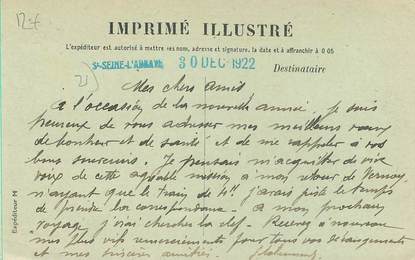 IMPRIMÉ ILLUSTRÉ
L'expéditeur est autorisé à mettre ses nom, adresse et signature, la date et à affranchir à 0 05
St-SEINE-L'ABBAYE 30 DEC 1922
Destinataire
Mes chers amis
A l'occasion de la nouvelle année, je suis
heureux de vous adresser mes meilleurs vœux
de bonheur et de santé et de me rappeler à vos
bons souvenirs. Je pensais m'acquitter de vive
voix de cette agréable mission à mon retour de
n'ayant que le train de j'aurais juste le temps
de prendre la correspondance. A mon prochain
voyage j'irai chercher la clef. Recevez à nouveau
mes plus vifs remerciements pour tous vos dérangements
et mes sincères amitiés.
Expéditeur M